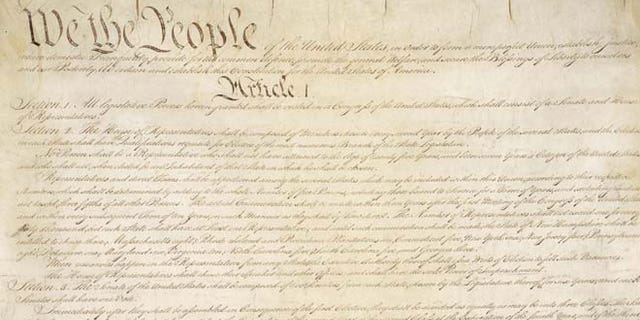 We the People of the United States, in Order to form a more perfect Union, establish Justice,
insure domestic Tranquility, provide for the common defence, promote the general Welfare, and secure the Blessings of Liberty to ourselves
and our Posterity, do ordain and establish this Constitution for the United States of America.
Article I
Section 1. All legislative Powers herein granted shall be vested in a Congress of the United States, which shall consist of a Senate and House
of Representatives.
Section 2. The House of Representatives shall be composed of Members chosen every second Year by the People of the several States, and the Electors
in each State shall have Qualifications requisite for Electors of the most numerous Branch of the State Legislature.
No Person shall be a Representative who shall not have attained to the Age of twenty five Years, and been seven Years a Citizen of the United States,
and who shall not, when elected, be an Inhabitant of that State in which he shall be chosen.
Representatives and direct Taxes shall be apportioned among the several States which may be included within this Union, according to their respective
Numbers, which shall be determined by adding to the whole Number of free Persons, including those bound to Service for a Term of Years, and excluding Indians
not taxed, three fifths of all other Persons. The actual Enumeration shall be made within three Years after the first Meeting of the Congress of the United States,
and within every subsequent Term of ten Years, in such Manner as they shall by Law direct. The Number of Representatives shall not exceed one for every
thirty Thousand, but each State shall have at Least one Representative; and until such enumeration shall be made, the State of New Hampshire shall be
entitled to chuse three, Massachusetts eight, Rhode Island and Providence Plantations one, Connecticut five, New York six, New Jersey four, Pennsylvania
eight, Delaware one, Maryland six, Virginia ten, North Carolina five, South Carolina five, and Georgia three.
When vacancies happen in the Representation from any State, the Executive Authority thereof shall issue Writs of Election to fill such Vacancies.
The House of Representatives shall chuse their Speaker and other Officers; and shall have the sole Power of Impeachment.
Section 3. The Senate of the United States shall be composed of two Senators from each State, chosen by the Legislature thereof, for six Years; and each
Senator shall have one Vote.
Immediately after they shall be assembled in Consequence of the first Election, they shall be divided as equally as may be into three Classes. The